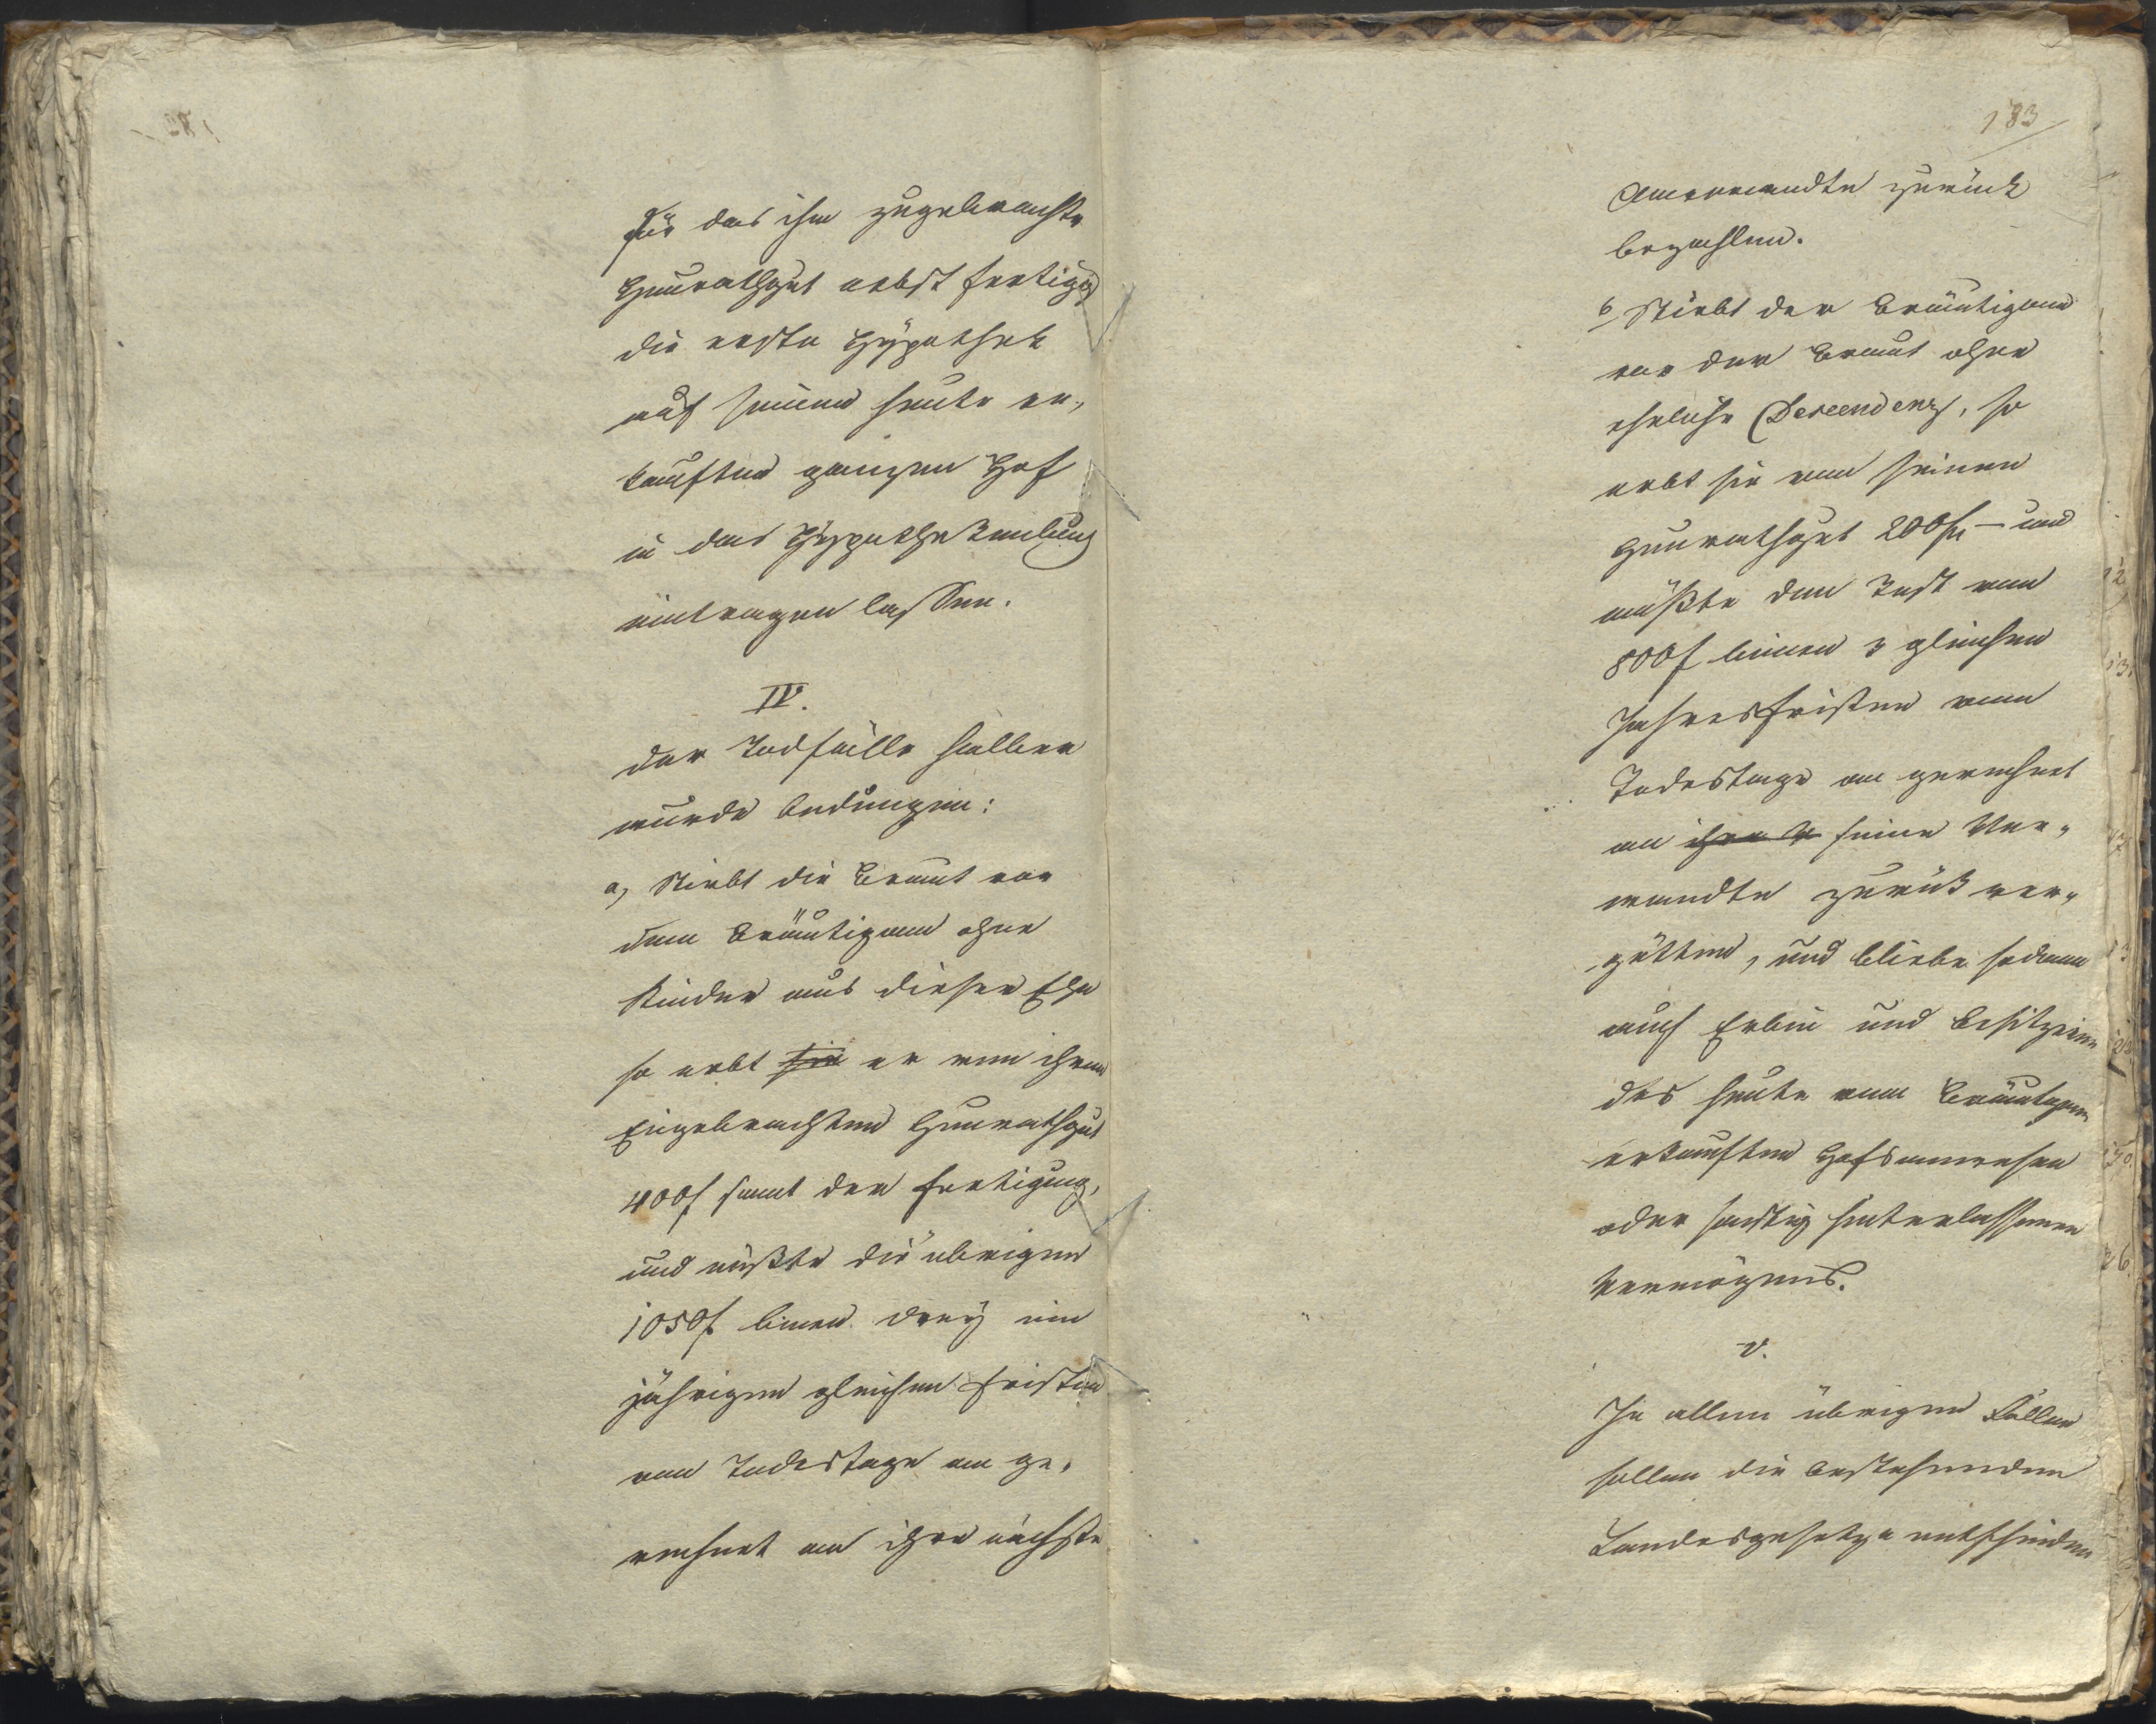 für das ihm zugebrachte
Heurathgut nebst fertigg
die erste Hÿpothek
auf seinem heute er„
kauften ganzen Hof
in das Hÿpothekenbuch
eintragen lassen.
IV.
der Todfälle halber
wurde bedungen:
a, Stirbt die Braut vor
dem Bräutigam ohne
Kinder aus dieser Ehe
so erbt sie er von ihrem
Eingebrachten Heurathgut
400f samt der Fertigung,
und müßte die übrigen
1050f binen dreÿ ein
jährigen gleichen Fristen
vom Todestage an ge„
rechnet an ihre nächste
183
Anverwandte zurück
bezahlen.
b, Stirbt der Bräutigam
vor der Braut ohne
eheliche Descendenz, so
erbt sie von seinem
Heurathgut 200f – und
müßte den Rest von
800f binen 3 gleichen
Jahresfristen vom
Todestage an gerechnet
an ihre seine Ver„
wandte zurück ver„
gütten, und bliebe sodann
auch Erbin und Besitzerin
des heute vom Bräutigam
erkauften Hofsanwesen
oder sonstig hinterlassenen
Vermögens.
V.
In allen übrigen Fällen
sollen die bestehenden
Landesgesetze entscheiden